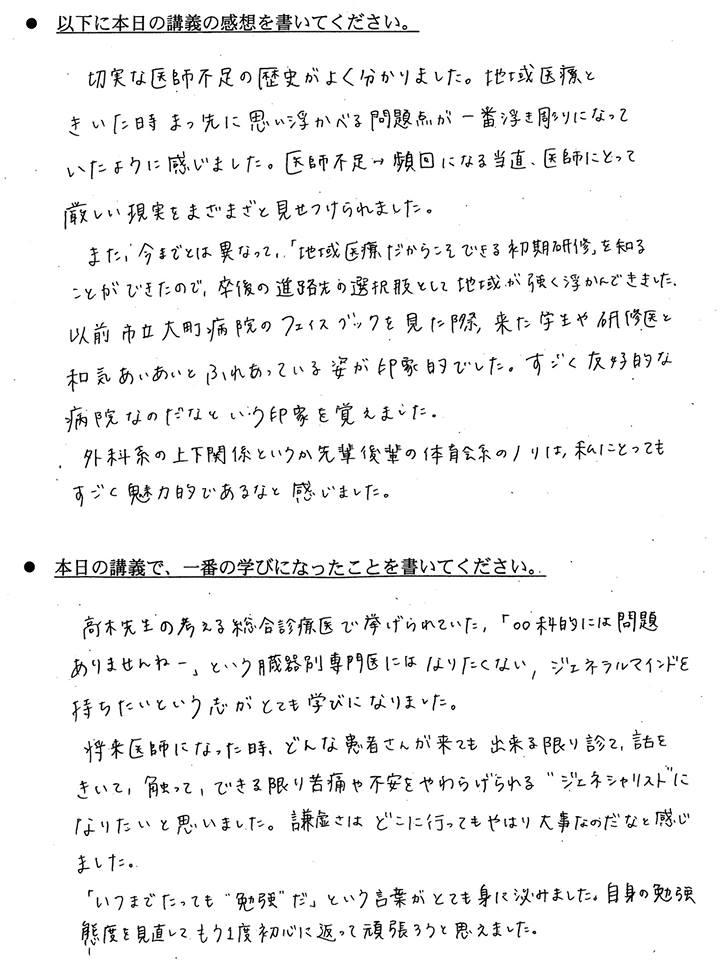 ● 以下に本日の講義の感想を書いてください。
切実な医師不足の歴史がよく分かりました。地域医療と
きいた時まっ先に思い浮かべる問題点が一番浮き彫りになって
いたように感じました。医師不足→頻回になる当直、医師にとって
厳しい現実をまざまざと見せつけられました。
また、今までとは異なって、「地域医療だからこそできる初期研修」を知る
ことができたので、卒後の進路先の選択肢として地域が強く浮かんできました。
以前市立大町病院のフェイスブックを見た際、来た学生や研修医と
和気あいあいとふれあっている姿が印象的でした。すごく友好的な
病院なのだなという印象を覚えました。
外科系の上下関係というか先輩後輩の体育会系のノリは、私にとっても
すごく魅力的であるなと感じました。
● 本日の講義で、一番の学びになったことを書いてください。
高木先生の考える総合診療医で挙げられていた、「○○科的には問題
ありませんねー」という臓器別専門医にはなりたくない、ジェネラルマインドを
持ちたいという志がとても学びになりました。
将来医師になった時、どんな患者さんが来ても出来る限り診て、話を
きいて、触って、できる限り苦痛や不安をやわらげられる"ジェネシャリスト"に
なりたいと思いました。謙虚さはどこに行ってもやはり大事なのだなと感じ
ました。
「いつまでたっても"勉強"だ」という言葉がとても身に泌みました。自身の勉強
態度を見直してもう1度初心に返って頑張ろうと思えました。